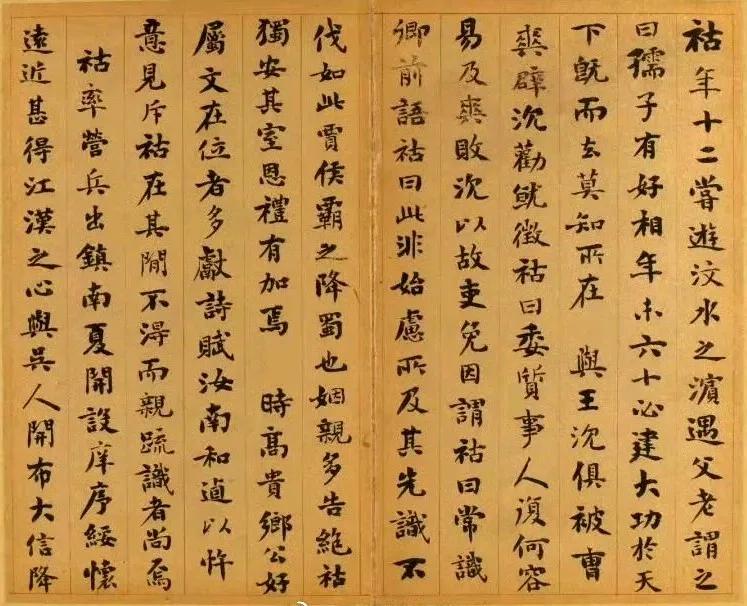 祜年十二嘗遊汶水之濱遇父老謂之
曰孺子有好相年未六十必建大功於天
下旣而去莫知所在 與王沈俱被曹
爽辟沈勸就徵祜曰委質事人復何容
易及爽敗沈以故吏免因謂祜曰常識
卿前語祜曰此非始慮所及其先識不
伐如此夏侯霸之降蜀也姻親多告絕祜
獨安其室恩禮有加焉 時高貴鄉公好
屬文在位者多獻詩賦汝南和逌以忤
意見斥祜在其間不得而親踈識者尚焉
祜率營兵出鎮南夏開設庠序綏懷
遠近甚得江漢之心與吳人開布大信降